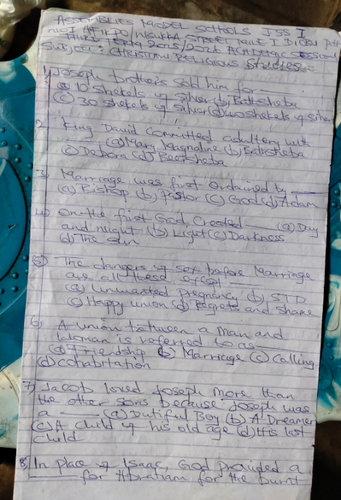 ASSEMBLIES MODEL SCHOOLS JSS I
STREET
2025/2026 ACADEMIC SESSION
Subject: CHRISTIAN RELIGIOUS STUDIES
1. Joseph brothers sold him for
(a) 10 shekels of silver (b) Bathsheba
(c) 30 shekels of silver (d) 20 shekels of silver
2. King David committed adultery with
(a) Mary Magnaline (b) Bathsheba
(c) Debora (d) Beersheba
3. Marriage was first ordained by
(a) Bishop (b) pastor (c) God (d) Adam
4. On the first God Created (a) Day
and night (b) Light (c) Darkness
(d) The sun
5. The dangers of sex before Marriage
are all these except
(a) Unwanted pregnancy (b) STD
(c) Happy union (d) Regrets and shame
6. A union between a Man and
Woman is referred to as
(a) Friendship (b) Marriage (c) Calling
(d) cohabitation
7. Jacob loved Joseph more than
the other sons because Joseph was
a (a) Dutiful Boy (b) A Dreamer
(c) A child of his old age (d) His last
child
8. In place of Isaac, God provided a
for Abraham for the burnt